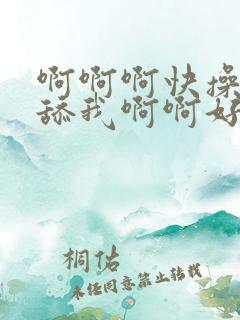 啊啊啊快操
舔我啊啊好
桐估
未任同意禁止转载